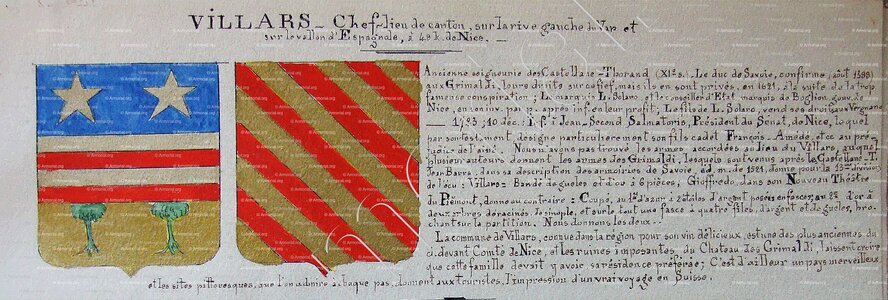 VILLARS – Chef-lieu de canton, sur la rive gauche du Var et
sur le vallon d'Espagnole, à 48 k. de Nice. –
Ancienne seigneurie des Castellane-Thorand (XIe s.). Le duc de Savoie, confirme (août 1599)
aux Grimaldi, leurs droits sur ce fief, mais ils en sont privés, en 1621, à la suite de la trop
fameuse conspiration; Le marquis L. Solaro, et le conseiller d'Etat marquis de Boglio, gouv. de
Nice, en son inv. par p. après inf. en leur profit. Le fils de L. Solaro, vend ses droits aux
par son test. ment désigne particulièrement son fils cadet François-Amédé, et ce au pré-
judice de l'aîné. Nous n'avons pas trouvé les armes accordées au lieu du Villars, auquel
plusieurs auteurs donnent les armes des Grimaldi, lesquels sont venus après le Castellane-T.
Jean Barra, dans sa description des armoiries de Savoie, éd. m. de 1521, donne pour la 13me division
de l'écu: Villars: Bandé de gueles et d'or à 6 pièces; Gioffredo, dans son Nouveau Théâtre
du Piémont, donne au contraire: Coupé, au 1er d'azur à 2 étoiles d'argent posées en fasces, au 2d d'or à
deux arbres déracinés de sinople, et sur le tout une fasce à quatre files, d'argent et de gueles, bro-
chant sur la partition. Nous donnons les deux.
La commune de Villars, connue dans la région pour son vin délicieux, est une des plus anciennes du
ci-devant Comté de Nice, et les ruines imposantes du Chateau des Grimaldi, laissent croire
que cette famille devait y avoir sa résidence préférée; C'est d'ailleur un pays merveilleux
et les sites pittoresques, que l'on admire à chaque pas, donnent aux touristes, l'impression d'un vrai voyage en Suisse.
© Armorial.org